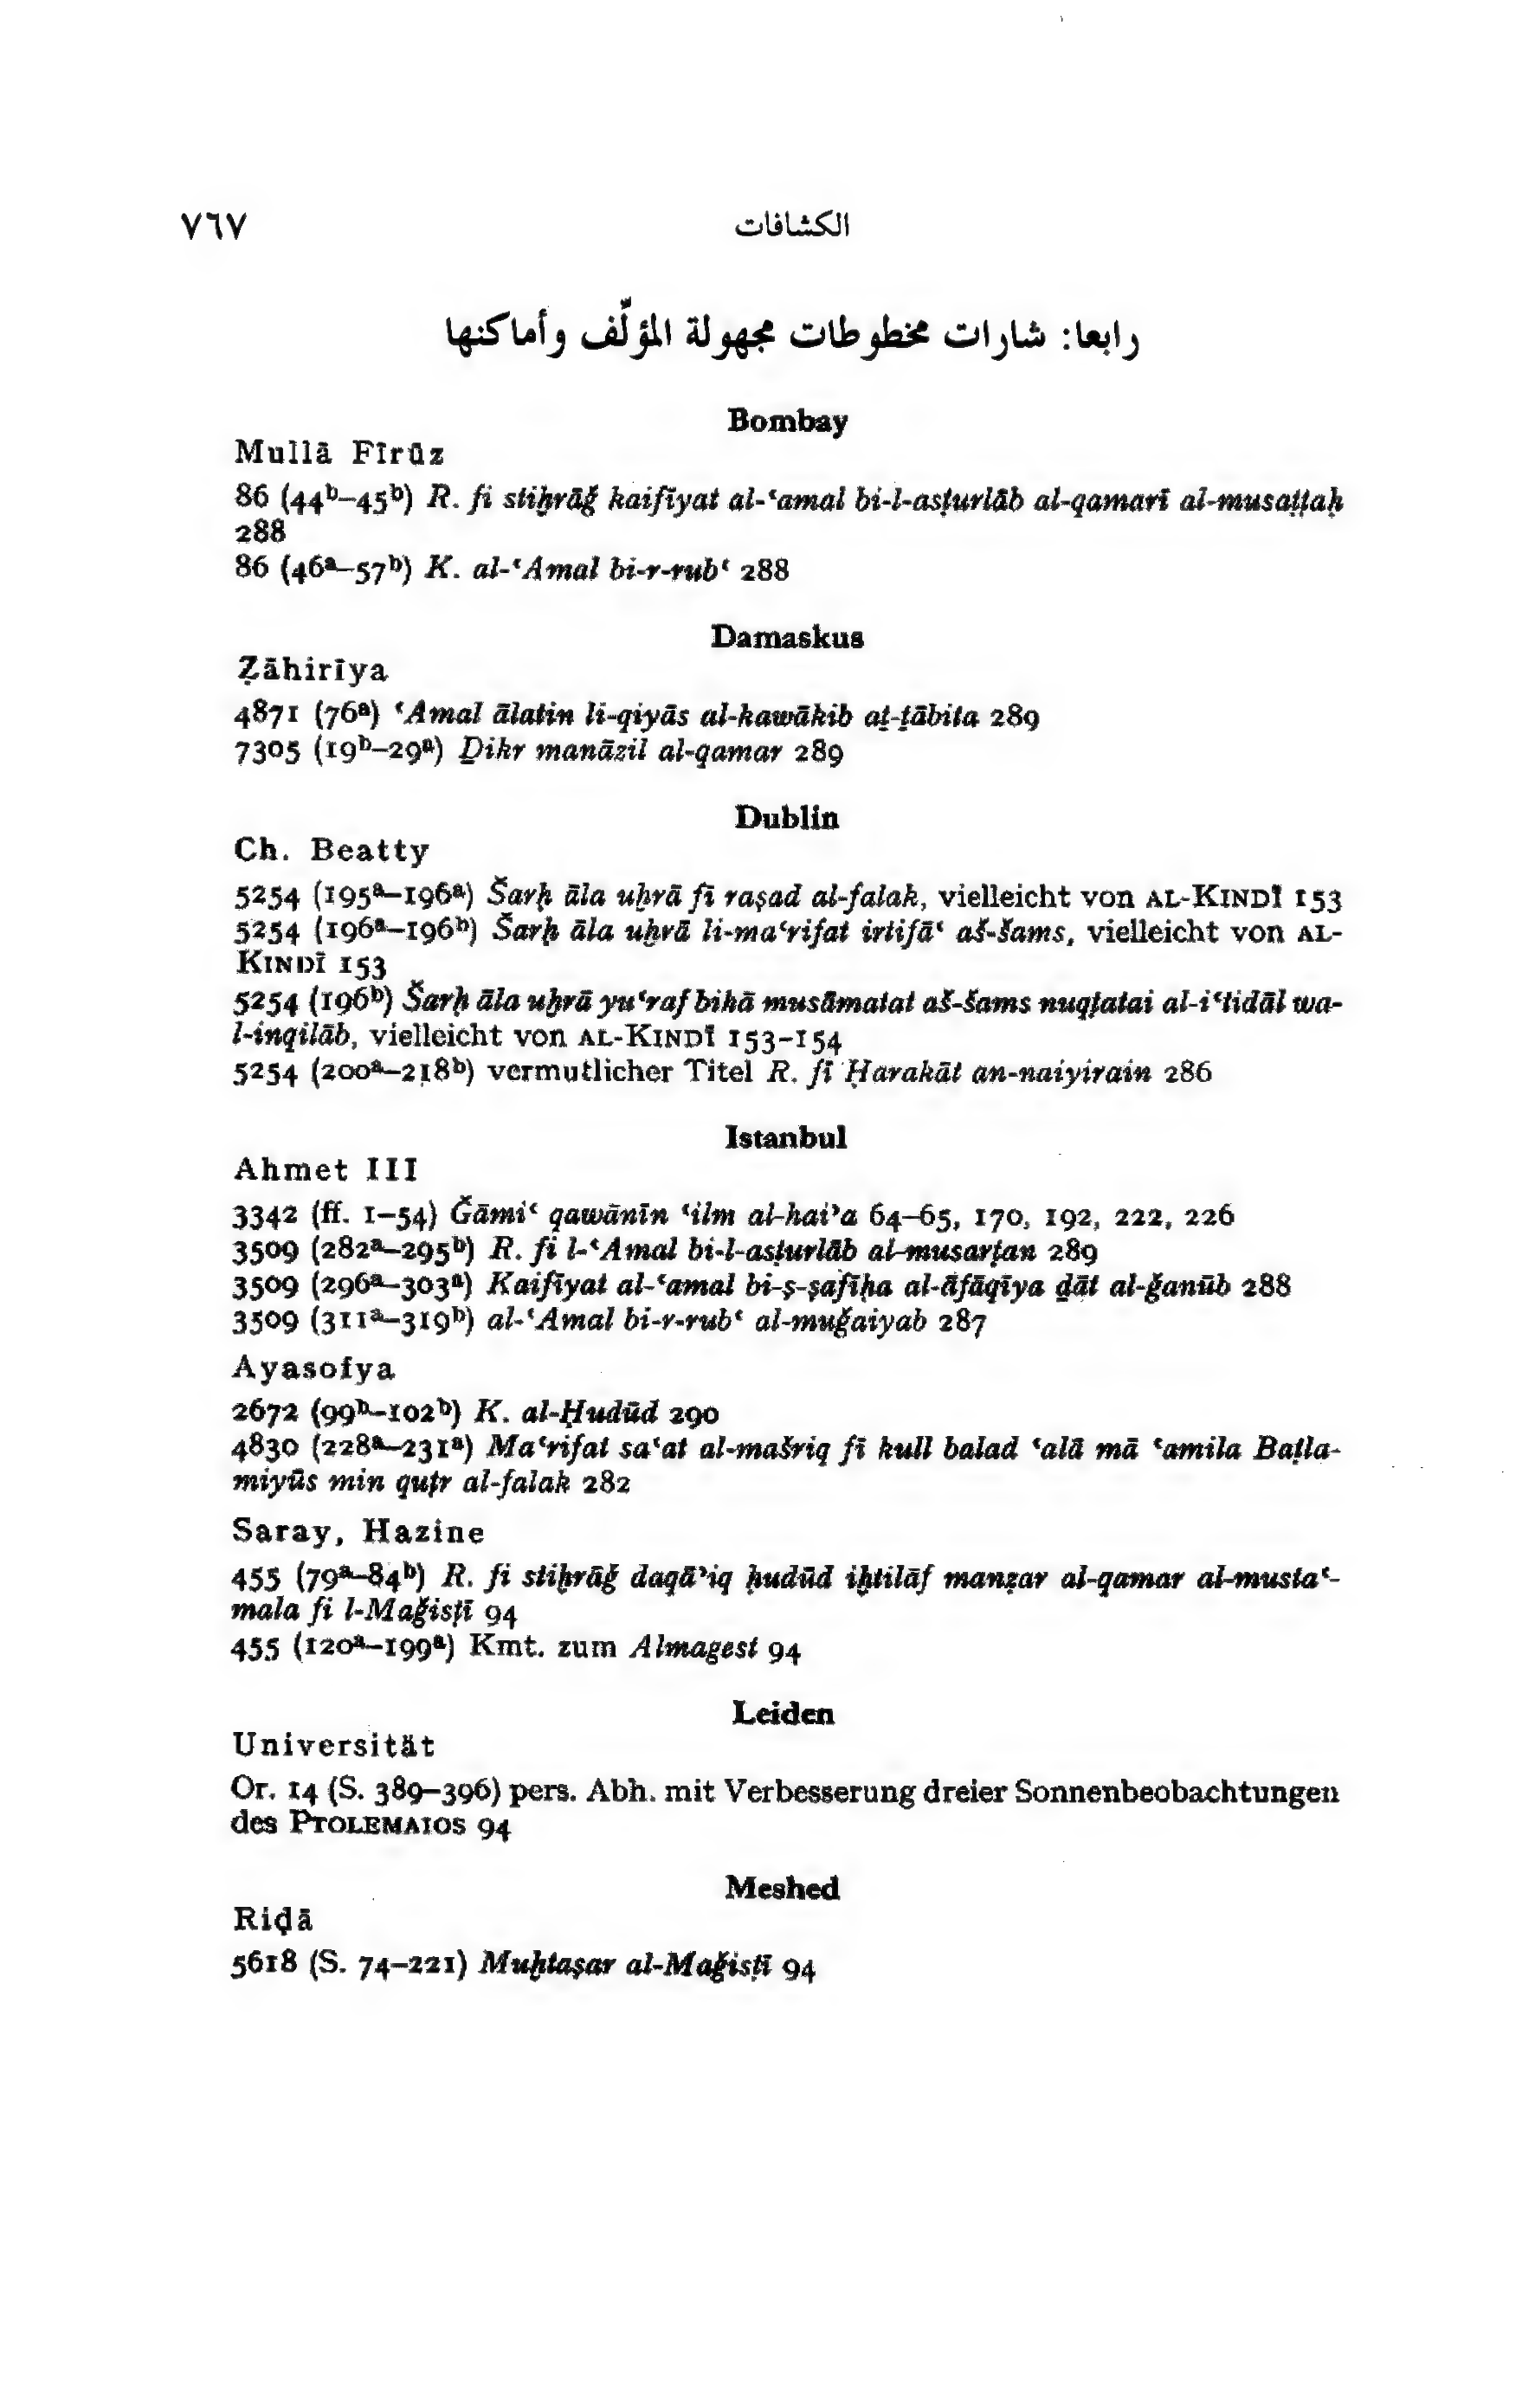 ٧٦٧ الكشافات
رابعا: شارات مخطوطات مجهولة المؤلّف وأماكنها
Bombay
Mullā Fīrūz
86 (44ᵇ–45ᵇ) R. fi stiḫrāǧ kaifīyat al-ʿamal bi-l-asṭurlāb al-qamarī al-musaṭṭaḥ
288
86 (46ᵃ–57ᵇ) K. al-ʿAmal bi-r-rubʿ 288
Damaskus
Ẓāhirīya
4871 (76ᵃ) ʿAmal ālatin li-qiyās al-kawākib aṯ-ṯābita 289
7305 (19ᵇ–29ᵃ) Ḏikr manāzil al-qamar 289
Dublin
Ch. Beatty
5254 (195ᵃ–196ᵃ) Šarḥ āla uḫrā fī raṣad al-falak, vielleicht von AL-KINDĪ 153
5254 (196ᵃ–196ᵇ) Šarḥ āla uḫrā li-maʿrifat irtifāʿ aš-šams, vielleicht von AL-
KINDĪ 153
5254 (196ᵇ) Šarḥ āla uḫrā yuʿraf bihā musāmatat aš-šams nuqṭatai al-iʿtidāl wa-
l-inqilāb, vielleicht von AL-KINDĪ 153–154
5254 (200ᵃ–218ᵇ) vermutlicher Titel R. fī Ḥarakāt an-naiyirain 286
Istanbul
Ahmet III
3342 (ff. 1–54) Ǧāmiʿ qawānīn ʿilm al-haiʾa 64–65, 170, 192, 222, 226
3509 (282ᵃ–295ᵇ) R. fi l-ʿAmal bi-l-asṭurlāb al-musarṭan 289
3509 (296ᵃ–303ᵃ) Kaifīyat al-ʿamal bi-ṣ-ṣafīḥa al-āfāqīya ḏāt al-ǧanūb 288
3509 (311ᵃ–319ᵇ) al-ʿAmal bi-r-rubʿ al-muǧaiyab 287
Ayasofya
2672 (99ᵇ–102ᵇ) K. al-Ḥudūd 290
4830 (228ᵃ–231ᵃ) Maʿrifat saʿat al-mašriq fī kull balad ʿalā mā ʿamila Baṭla-
miyūs min quṭr al-falak 282
Saray, Hazine
455 (79ᵃ–84ᵇ) R. fi stiḫrāǧ daqāʾiq ḥudūd iḫtilāf manẓar al-qamar al-mustaʿ-
mala fi l-Maǧisṭī 94
455 (120ᵃ–199ᵃ) Kmt. zum Almagest 94
Leiden
Universität
Or. 14 (S. 389–396) pers. Abh. mit Verbesserung dreier Sonnenbeobachtungen
des PTOLEMAIOS 94
Meshed
Riḍā
5618 (S. 74–221) Muḫtaṣar al-Maǧisṭī 94